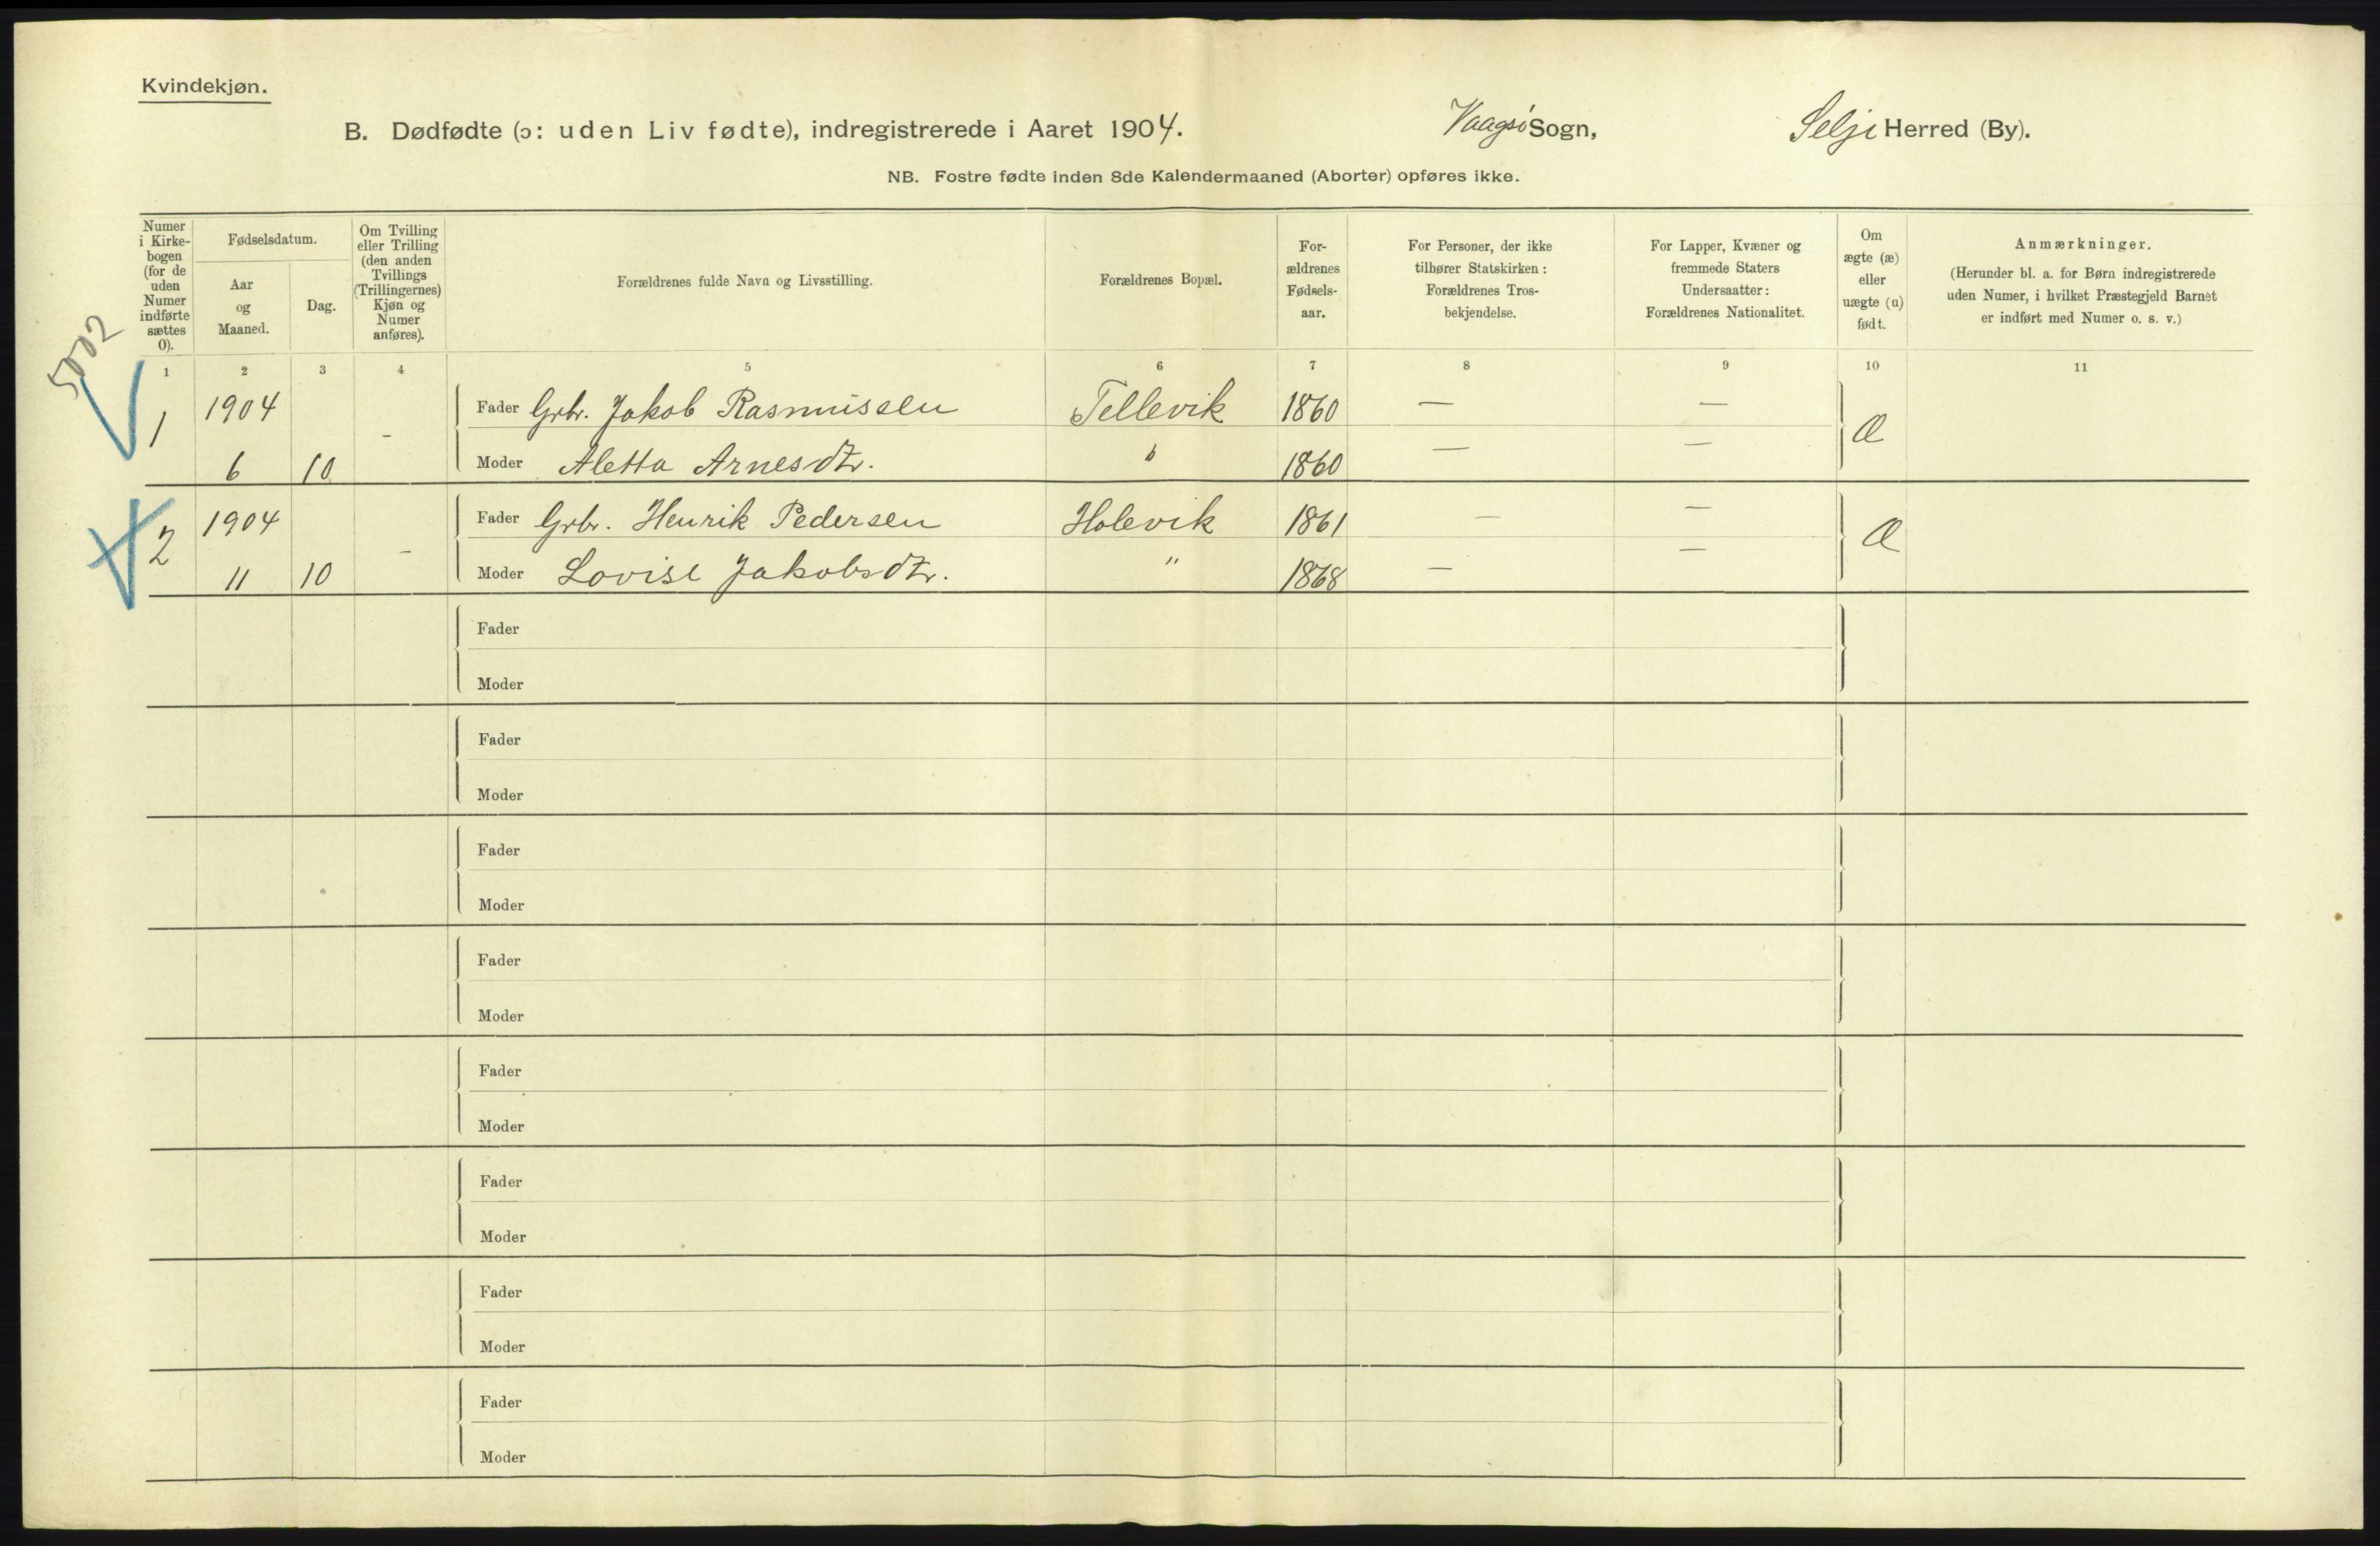 Kvindekjøn.
B. Dødfødte (ɔ: uden Liv fødte), indregistrerede i Aaret 1904. Vaagsö Sogn, Selje Herred (By).
NB. Fostre fødte inden 8de Kalendermaaned (Aborter) opføres ikke.
Numer i Kirke-bogen (for de uden Numer indførte sættes 0).
Fødselsdatum.
Aar og Maaned.
Dag.
Om Tvilling eller Trilling (den anden Tvillings (Trillingernes) Kjøn og Numer anføres).
Forældrenes fulde Navn og Livsstilling.
Forældrenes Bopæl.
For-ældrenes Fødsels-aar.
For Personer, der ikke tilhører Statskirken: Forældrenes Tros-bekjendelse.
For Lapper, Kvæner og fremmede Staters Undersaatter: Forældrenes Nationalitet.
Om ægte (æ) eller uægte (u) født.
Anmærkninger.
(Herunder bl. a. for Børn indregistrerede uden Numer, i hvilket Præstegjeld Barnet er indført med Numer o. s. v.)
5002
1 2 3 4 5 6 7 8 9 10 11
1 1904 - Fader Grbr. Jakob Rasmussen Tellevik 1860 — — Æ
6 10 Moder Aletta Arnesdtr. " 1860 — —
2 1904 - Fader Grbr. Henrik Pedersen Holevik 1861 — — Æ
11 10 Moder Lovise Jakobsdtr. " 1868 — —
Fader
Moder
Fader
Moder
Fader
Moder
Fader
Moder
Fader
Moder
Fader
Moder
Fader
Moder
Fader
Moder